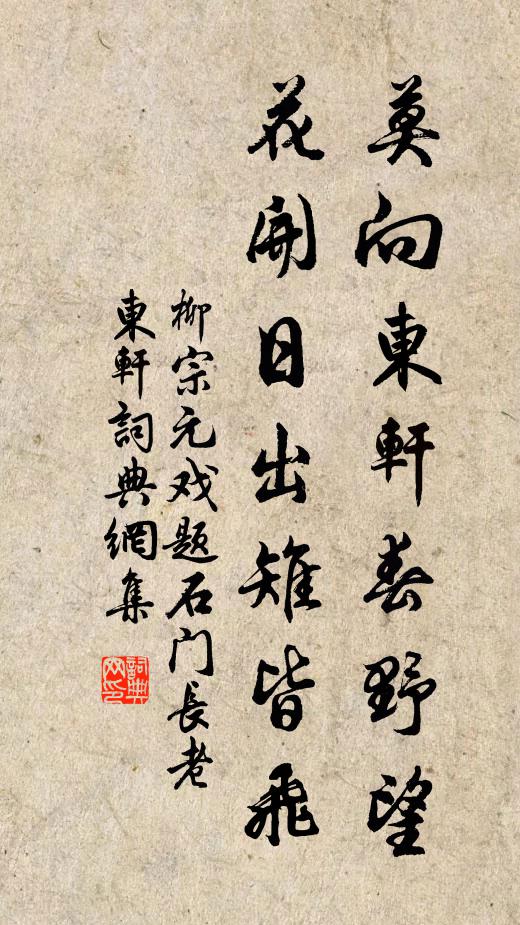 莫向東軒春野望
花開日出雉皆飛
柳宗元戏题石门長老
東軒詞典網集
詞典网印